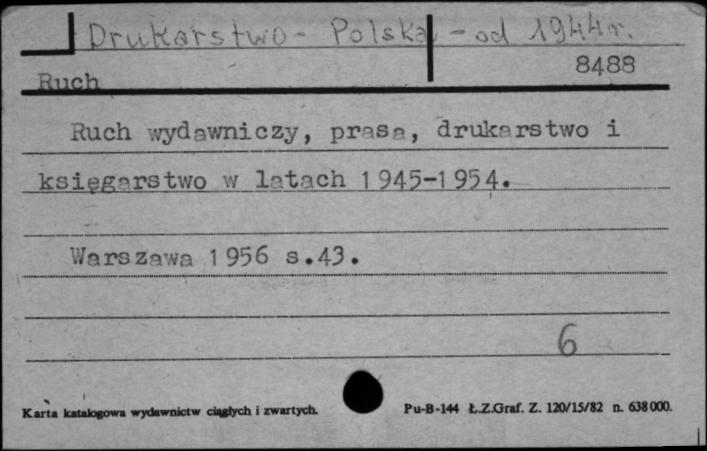 Drukarstwo - Polska, - od 1944 r.
8488
Ruch
Ruch wydawniczy, prasa, drukarstwo i
księgarstwo w latach 1945-1954.
Warszawa 1956 s.43.
6
Karta katalogowa wydawnictw ciągłych i zwartych. Pu-B-144 Ł.Z.Graf. Z. 120/15/82 n. 638000.